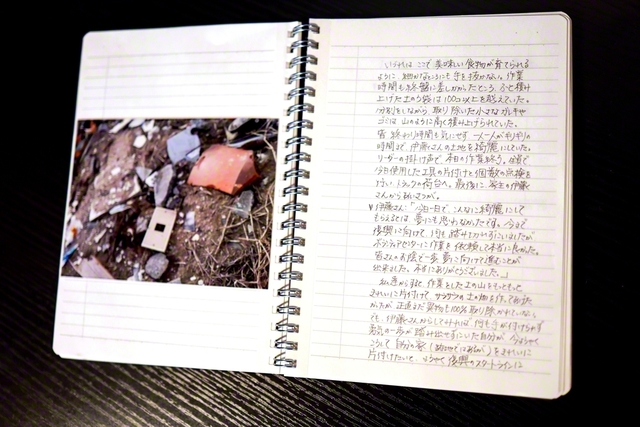 いうわけはここで美味しい食物が育てられる
ように細かなところにも手を抜かない。作業
時間も終盤に差しかかったところ、ふと積み
上げた土のう袋は100コ以上を超えていた。
分別をしながら、取り除いた小さなガレキや
ゴミは山のように高く積み上げられていた。
皆 終わり時間も気にせず 一人一人が
時間まで、伊藤さんの土地を綺麗にしていた。
リーダーの掛け声で、本日の作業終了。
今日使用した工具の片付けと個数の点検を
行い、トラックの荷台へ。最後に、家主の伊藤
さんから
伊藤さん「今日一日で、こんなに綺麗にして
もらえるとは 夢にも思わなかったです。今まで
復興に向けて、何も踏み出せずにいましたが
ボランティアセンターに作業を依頼して本当に良かった。
皆さんのお陰で一歩 夢に向けて進むことが
出来ました。本当にありがとうございました。」
私達からすると、作業をした土の山をもっともっと
きれいに片付けて、サラサラの土の畑を作って
正直まだ異物も100%取り除かれていない。
でも、伊藤さんからしてみれば、何も手が付けられず
一歩が踏み出せずにいた自分が、今ようやく
こうして自分の家 をきれいに
片付けたいと、ようやく復興のスタートラインに